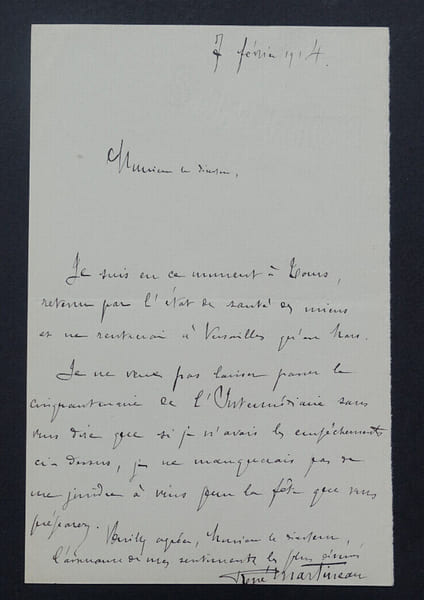 7 février 1914.
Monsieur le directeur,
Je suis en ce moment à Tours,
retenu par l'état de santé des miens
et ne rentrerai à Versailles qu'en Mars.
Je ne veux pas laisser passer le
cinquantenaire de l'Intermédiaire sans
vous dire que si je n'avais les empêchements
ci-dessus, je ne manquerais pas de
me joindre à vous pour la fête que vous
préparez. Veuillez agréer, Monsieur le directeur,
l'assurance de mes sentiments les plus
René Martineau